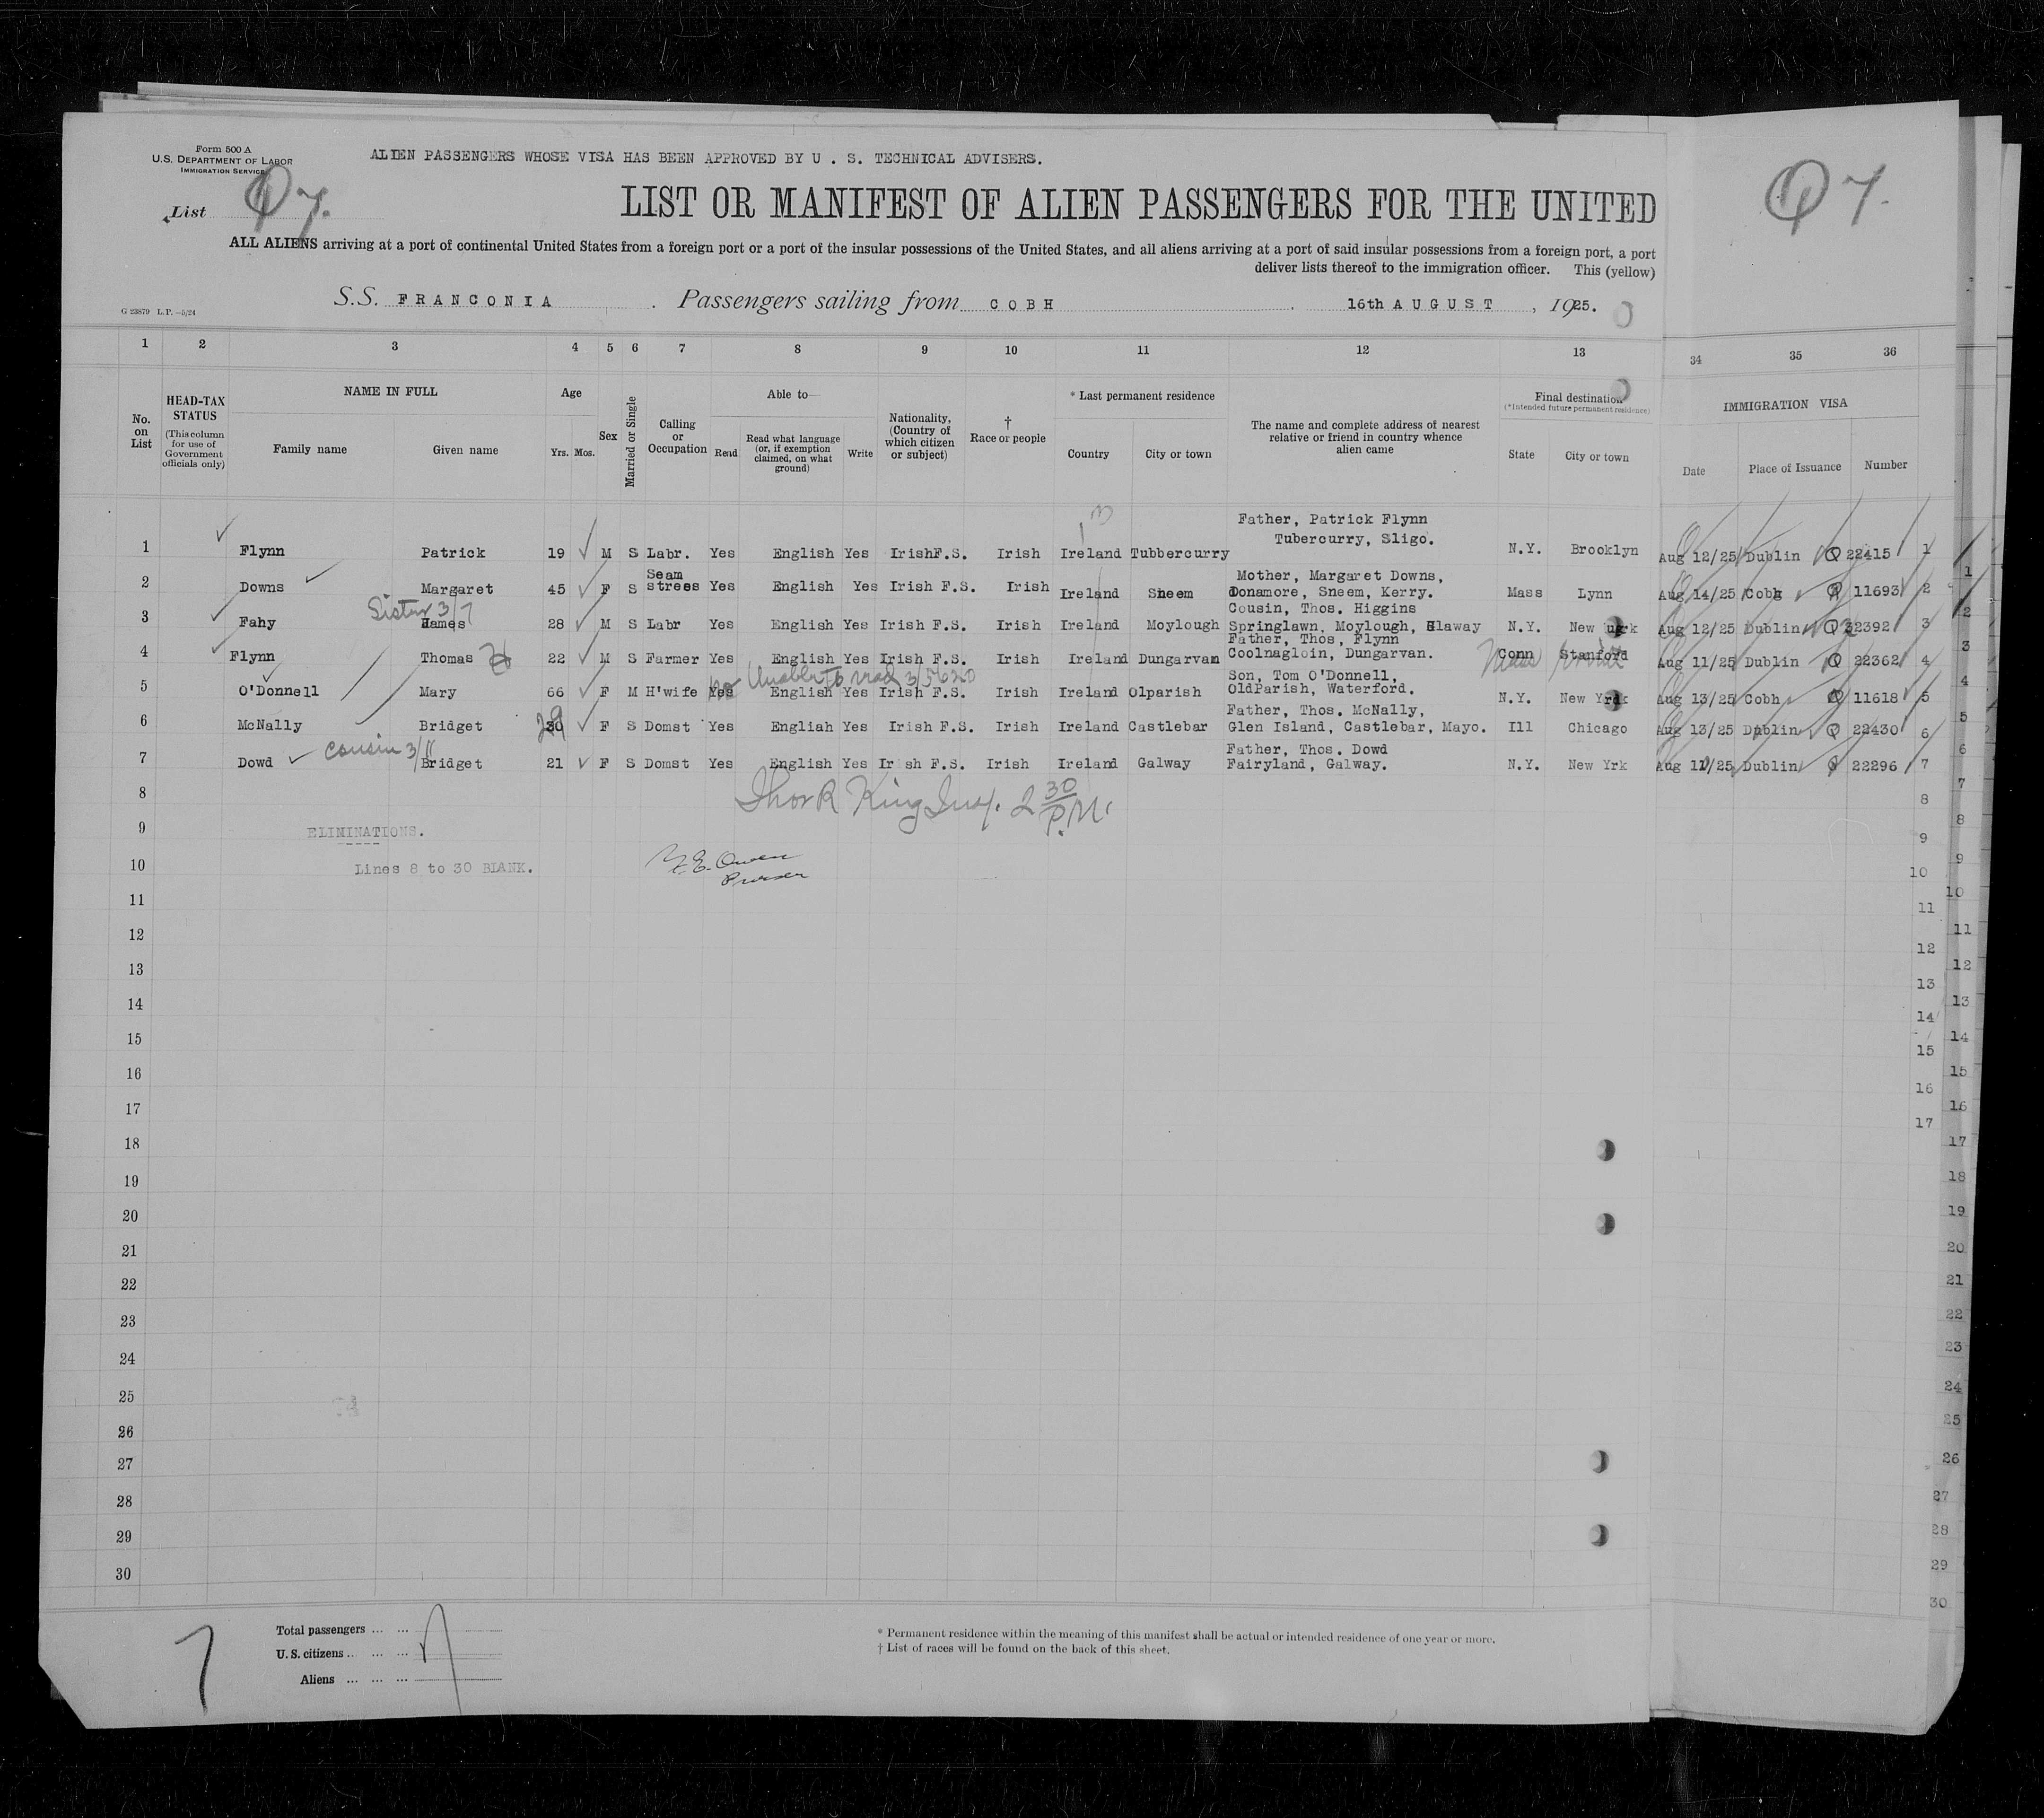 Form 500 A
U.S. DEPARTMENT OF LABOR
IMMIGRATION SERVICE
ALIEN PASSENGERS WHOSE VISA HAS BEEN APPROVED BY U . S. TECHNICAL ADVISERS.
List Q 7.
LIST OR MANIFEST OF ALIEN PASSENGERS FOR THE UNITED
Q 7.
ALL ALIENS arriving at a port of continental United States from a foreign port or a port of the insular possessions of the United States, and all aliens arriving at a port of said insular possessions from a foreign port, a port
deliver lists thereof to the immigration officer. This (yellow)
S.S. FRANCONIA . Passengers sailing from COBH . 16th AUGUST , 1925.
G 23879 L.P.—5/24
1 2 3 4 5 6 7 8 9 10 11 12 13 34 35 36
No. on List
HEAD-TAX STATUS
(This column for use of Government officials only)
NAME IN FULL
Family name Given name
Age
Yrs. Mos.
Sex
Married or Single
Calling or Occupation
Able to—
Read
Read what language (or, if exemption claimed, on what ground)
Write
Nationality, (Country of which citizen or subject)
† Race or people
* Last permanent residence
Country City or town
The name and complete address of nearest relative or friend in country whence alien came
Final destination
(*Intended future permanent residence)
State City or town
IMMIGRATION VISA
Date Place of Issuance Number
Father, Patrick Flynn
Tubercurry, Sligo.
1 Flynn Patrick 19 M S Labr. Yes English Yes IrishF.S. Irish Ireland Tubbercurry N.Y. Brooklyn Aug 12/25 Dublin Q 22415 1
Seam
Mother, Margaret Downs,
2 Downs Margaret 45 F S strees Yes English Yes Irish F.S. Irish Ireland Sneem Donamore, Sneem, Kerry. Mass Lynn Aug 14/25 Cobh Q 11693 2
Sister 3/7
Cousin, Thos. Higgins
3 Fahy James 28 M S Labr Yes English Yes Irish F.S. Irish Ireland Moylough Springlawn, Moylough, Glaway N.Y. New Aug 12/25 Dublin Q 22392 3
Father, Thos, Flynn
4 Flynn Thomas 22 M S Farmer Yes English Yes Irish F.S. Irish Ireland Dungarvan Coolnagloin, Dungarvan. Conn Stanford Mass Aug 11/25 Dublin Q 22362 4
no Unable to read
Son, Tom O'Donnell,
5 O'Donnell Mary 66 F M H'wife Yes English Yes Irish F.S. Irish Ireland Olparish OldParish, Waterford. N.Y. New Yrk Aug 13/25 Cobh Q 11618 5
Father, Thos. McNally,
6 McNally Bridget 30 29 F S Domst Yes Engliah Yes Irish F.S. Irish Ireland Castlebar Glen Island, Castlebar, Mayo. Ill Chicago Aug 13/25 Dublin Q 22430 6
cousin 3/11
Father, Thos. Dowd
7 Dowd Bridget 21 F S Domst Yes English Yes Ir sh F.S. Irish Ireland Galway Fairyland, Galway. N.Y. New Yrk Aug 11/25 Dublin Q 22296 7
8 King Insp. 2 30 P.M. 8
9 ELIMINATIONS. 9
10 Lines 8 to 30 BLANK. Owen 10
Purser
11 11
12 12
13 13
14 14
15 15
16 16
17 17
18 18
19 19
20 20
21 21
22 22
23 23
24 24
25 25
26 26
27 27
28 28
29 29
30 30
7
Total passengers ... ... 7
U.S. citizens ... ... ...
Aliens ... ... ...
* Permanent residence within the meaning of this manifest shall be actual or intended residence of one year or more.
† List of races will be found on the back of this sheet.